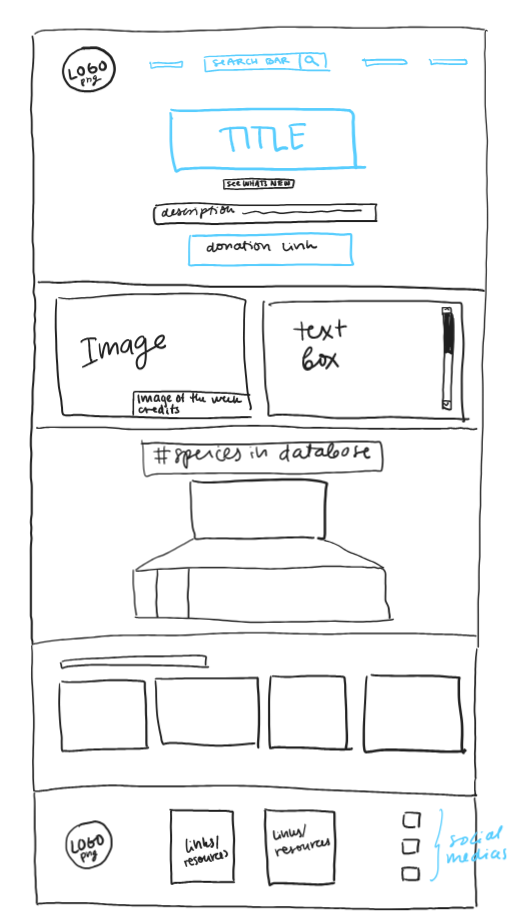 LOGO
png
SEARCH BAR
TITLE
SEE WHATS NEW
description
donation link
Image
Image of the week
credits
text
box
#speices in database
LOGO
png
links/
resources
links/
resources
social
medias